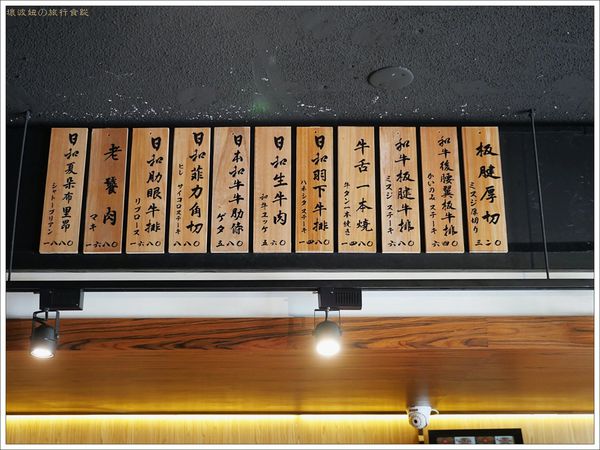 壞波妞の旅行食蹤
板腱厚切
ミスジ厚切り
三二〇
和牛後腰翼板牛排
かいのみステーキ
六四〇
和牛板腱牛排
ミスジステーキ
六八〇
牛舌一本燒
牛タン一本焼き
一四八〇
日和羽下牛排
ハネシタステーキ
一四八〇
日和生牛肉
和牛ユッケ
五六〇
日本和牛牛肋條
ゲタ
五八〇
日和菲力角切
ヒレサイコロステーキ
一八八〇
日和肋眼牛排
リブロース
一六八〇
老饕肉
マキ
一六八〇
日和夏朵布里昂
シャトーブリアン
一八八〇